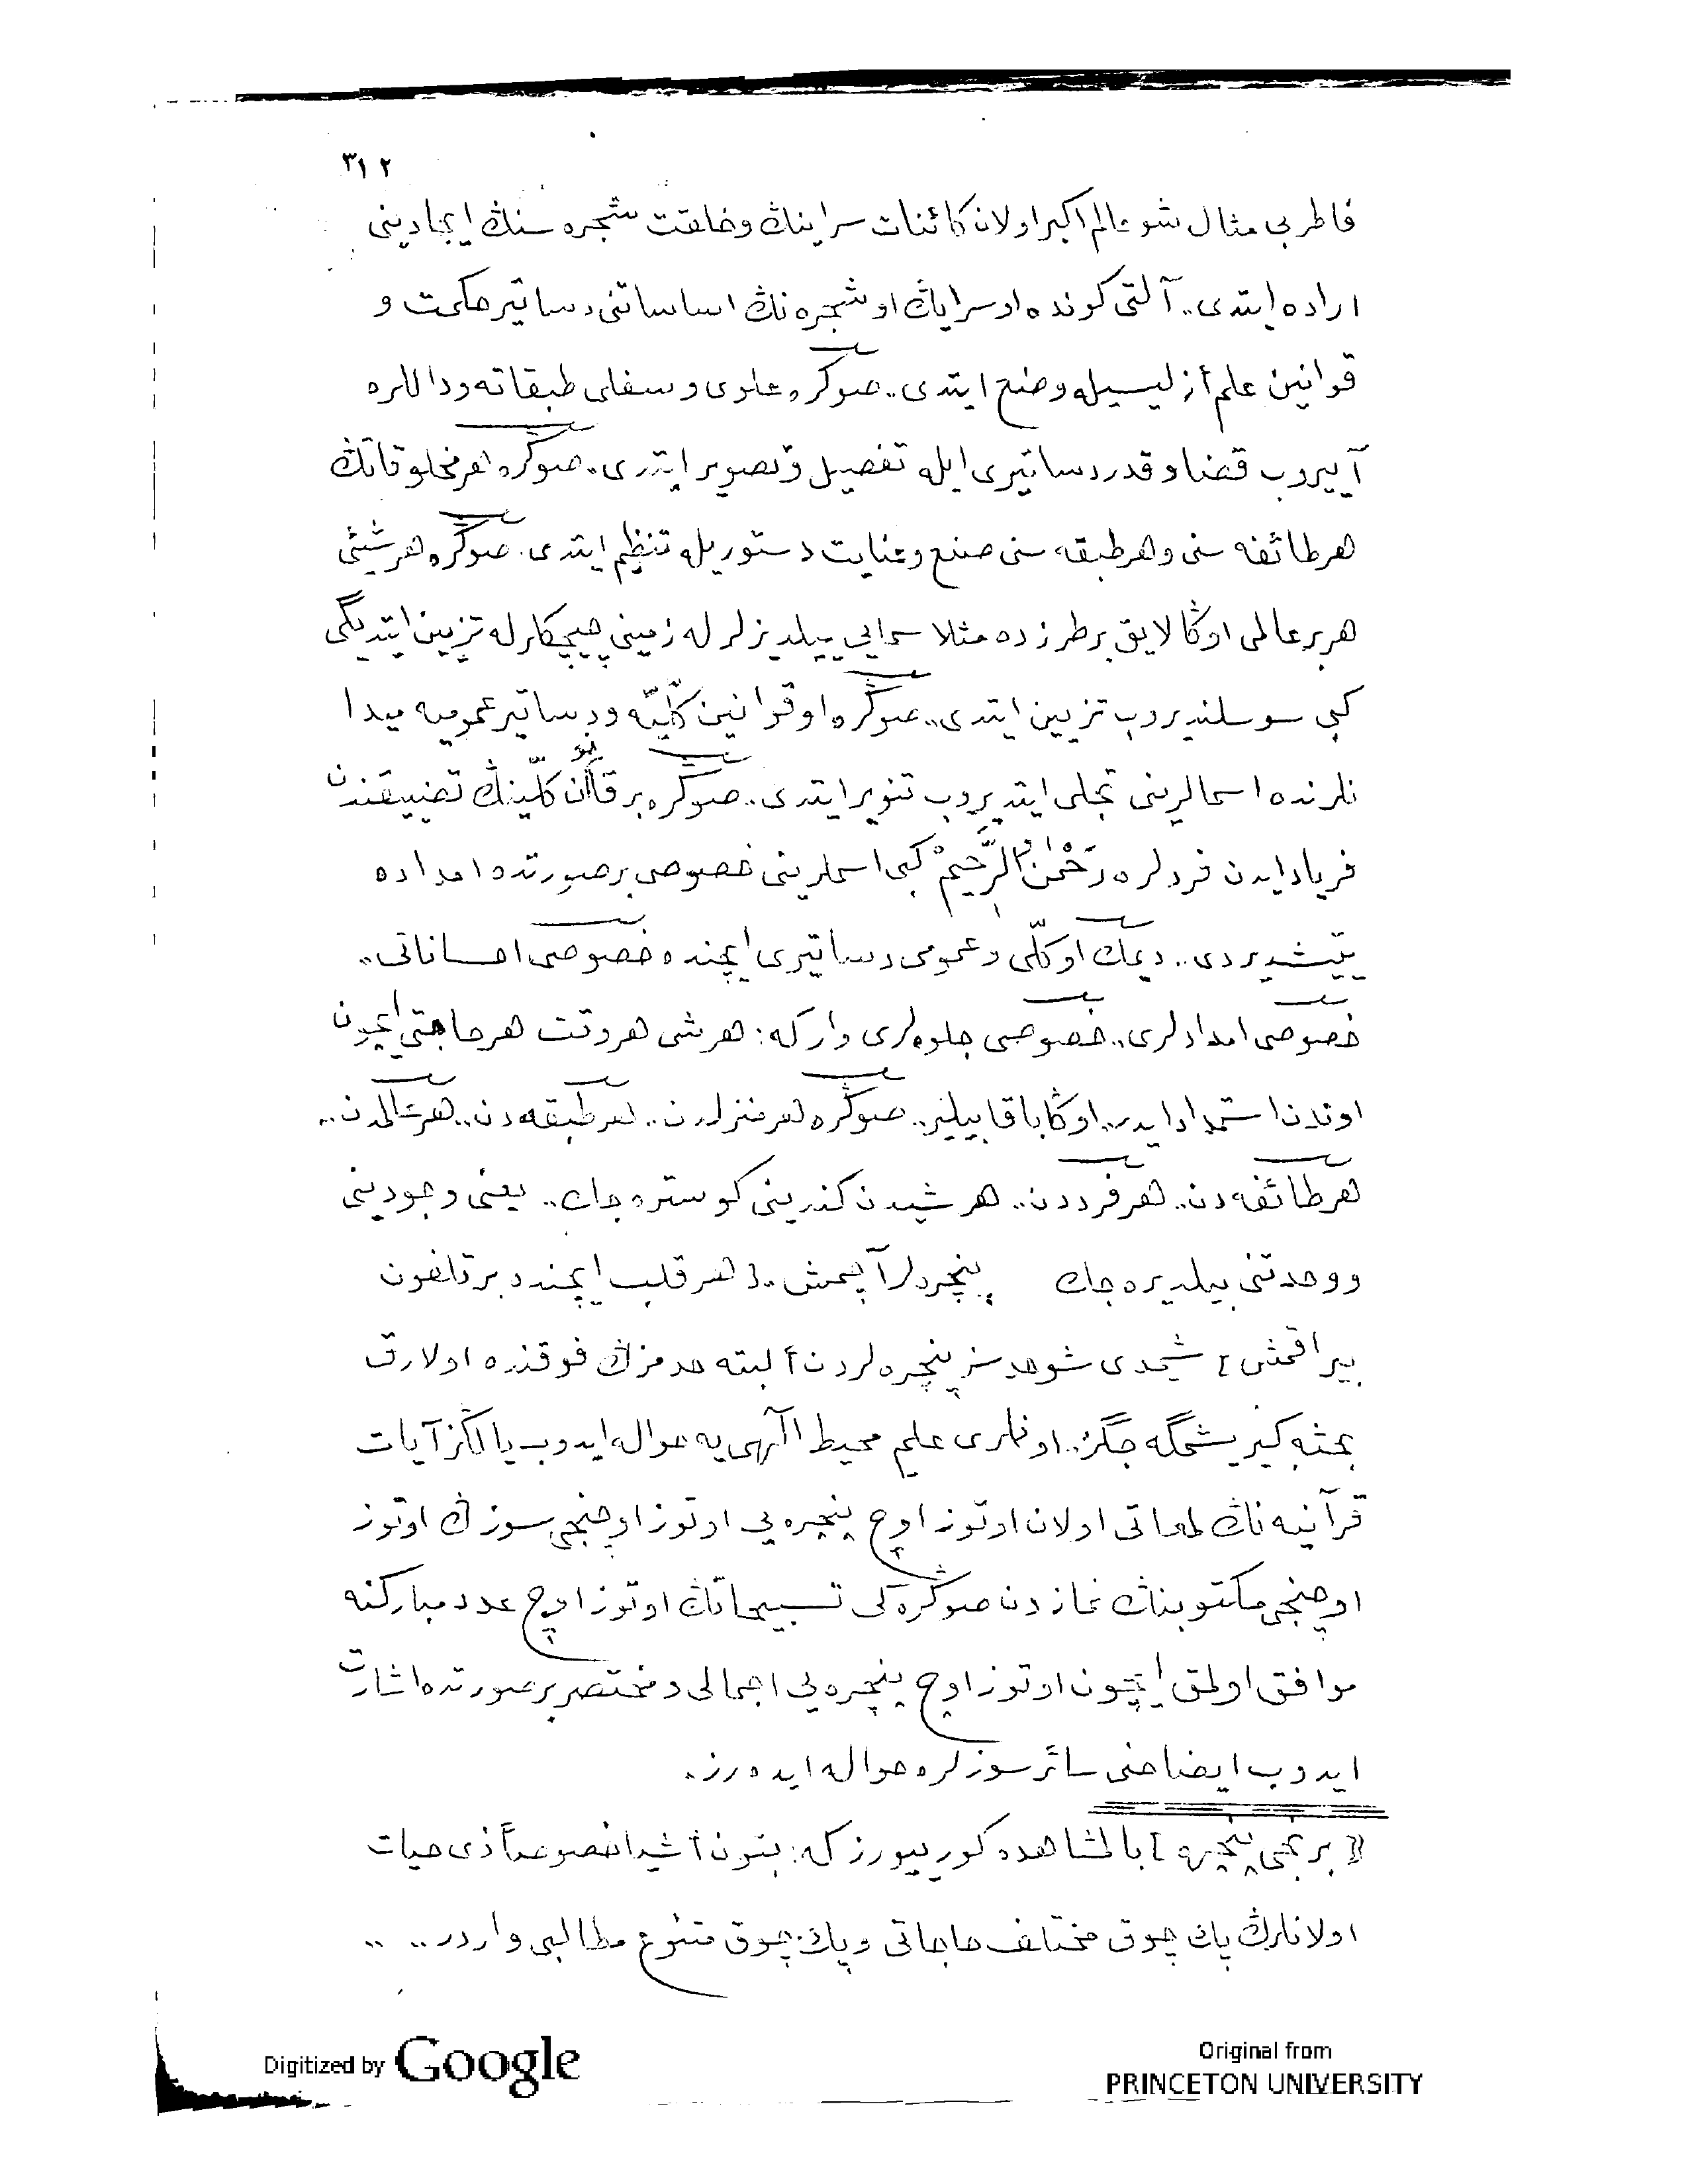 ٣١٢
فاطر بی مثال شو عالم اکبر اولان کائنات سراینڭ وخلقت شجره سنڭ ایجادینی
اراده ایتدی.. آلتی کونده او سرایڭ او شجره نڭ اساساتنی دساتیر حکمت و
قوانین علم أزلیسیله وضع ایتدی.. صوکره علوی وسفلی طبقاته ودالاره
آییروب قضا وقدر دساتیری ایله تفصیل وتصویر ایتدی. صوڭره هر مخلوقاتڭ
هر طائفه سنی وهر طبقه سنی صنع وعنایت دستوریله تنظیم ایتدی. صوڭره هر شیئی
هر بر عالمی اوڭا لایق بر طرزده مثلا سمایی ییلدیزلرله زمینی چیچکلرله تزیین ایتدیگی
کبی سوسلندیروب تزیین ایتدی.. صوڭره او قوانین کلّیّه ودساتیر عمومیه میدا
نلرنده اسمالرینی تجلی ایتدیروب تنویر ایتدی.. صوڭره بو قانون کلّینڭ تضییقندن
فریاد ایدن فردلره رَحْمٰنُ الرَّحِیمْ کبی اسملرینی خصوصی بر صورتده امداده
یتیشدیردی.. دیمك او کلّی وعمومی دساتیری ایچنده خصوصی احساناتی..
خصوصی امدادلری.. خصوصی جلوه لری وار که: هر شی هر وقت هر حاجتی ایچون
اوندن استمداد ایدر.. اوڭا باقابیلیر.. صوڭره هر منزلدن.. هر طبقه دن.. هر عالمدن..
هر طائفه دن.. هر فرددن.. هر شیدن کندینی کوستره جك.. یعنی وجودینی
ووحدتنی بیلدیره جك پنجره لر آچمش.. [هر قلب ایچنده بر تلفون
بیراقمش] شیمدی شو حدسز پنجره لردن ألبته حدمزڭ فوقنده اولارق
بحثه کیریشمگه جگز.. اونلری علم محیط الٓهی یه حواله ایدوب یالڭز آیات
قرآنیه نڭ لمعاتی اولان اوتوز اوچ پنجره یی اوتوز اوچنجی سوزڭ اوتوز
اوچنجی مکتوبنڭ نمازدن صوڭره کی تسبیحاتڭ اوتوز اوچ عدد مبارکنه
موافق اولمق ایچون اوتوز اوچ پنجره یی اجمالی ومختصر بر صورتده اشارت
ایدوب ایضاحنی سائر سوزلره حواله ایده رز.
[برنجی پنجره] بالمشاهده کورییورز که: بتون أشیا خصوصاً ذی حیات
اولانلرڭ پك چوق مختلف حاجاتی وپك چوق متنوع مطالبی واردر.. ..
Digitized by Google
Original from
PRINCETON UNIVERSITY